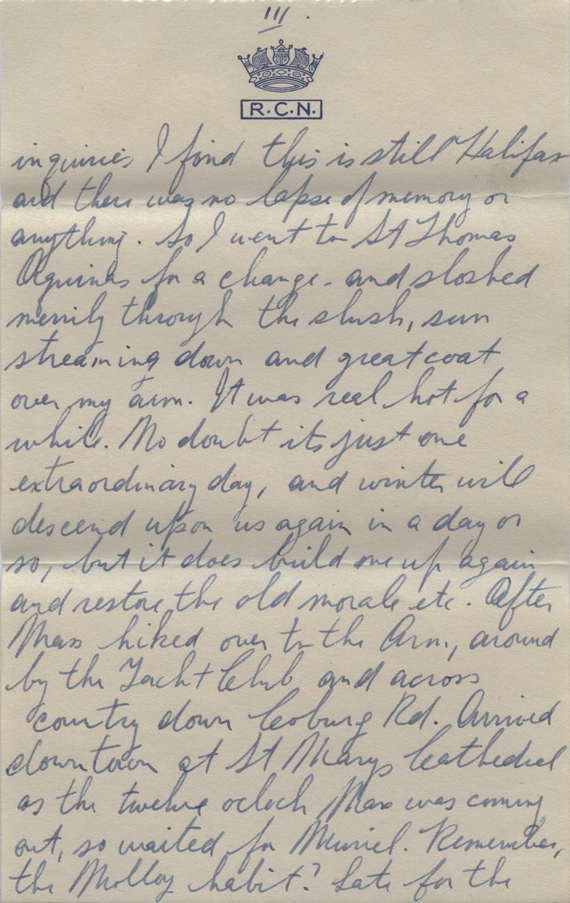 III.
R.C.N.
inquiries I find this is still Halifax
and there was no lapse of memory or
anything. So I went to St Thomas
Aquinas for a change - and sloshed
merrily through the slush, sun
streaming down and greatcoat
over my arm. It was real hot for a
while. No doubt its just one
extraordinary day, and winter will
descend upon us again in a day or
so, but it does build one up again
and restore the old morale etc. After
Mass hiked over to the Arm, around
by the Yacht Club and across
country down Coburg Rd. Arrived
downtown at St Marys Cathedral
as the twelve oclock Mass was coming
out, so waited for Muriel. Remember,
the Molloy habit? Late for the